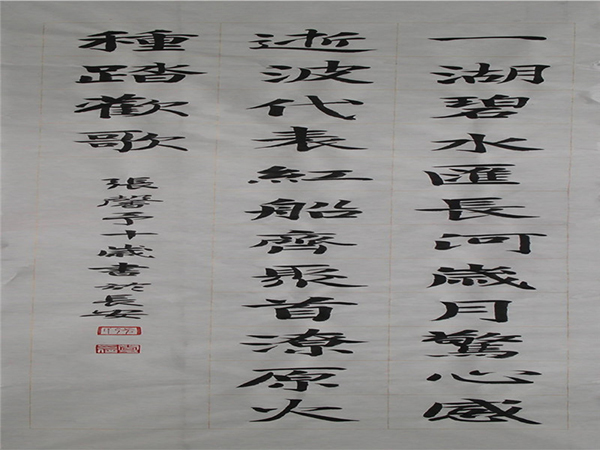 一湖碧水匯長河歲月驚心感
逝波代表紅船齊聚首潦原火
種踏歡歌
張馨予十歲書於長安